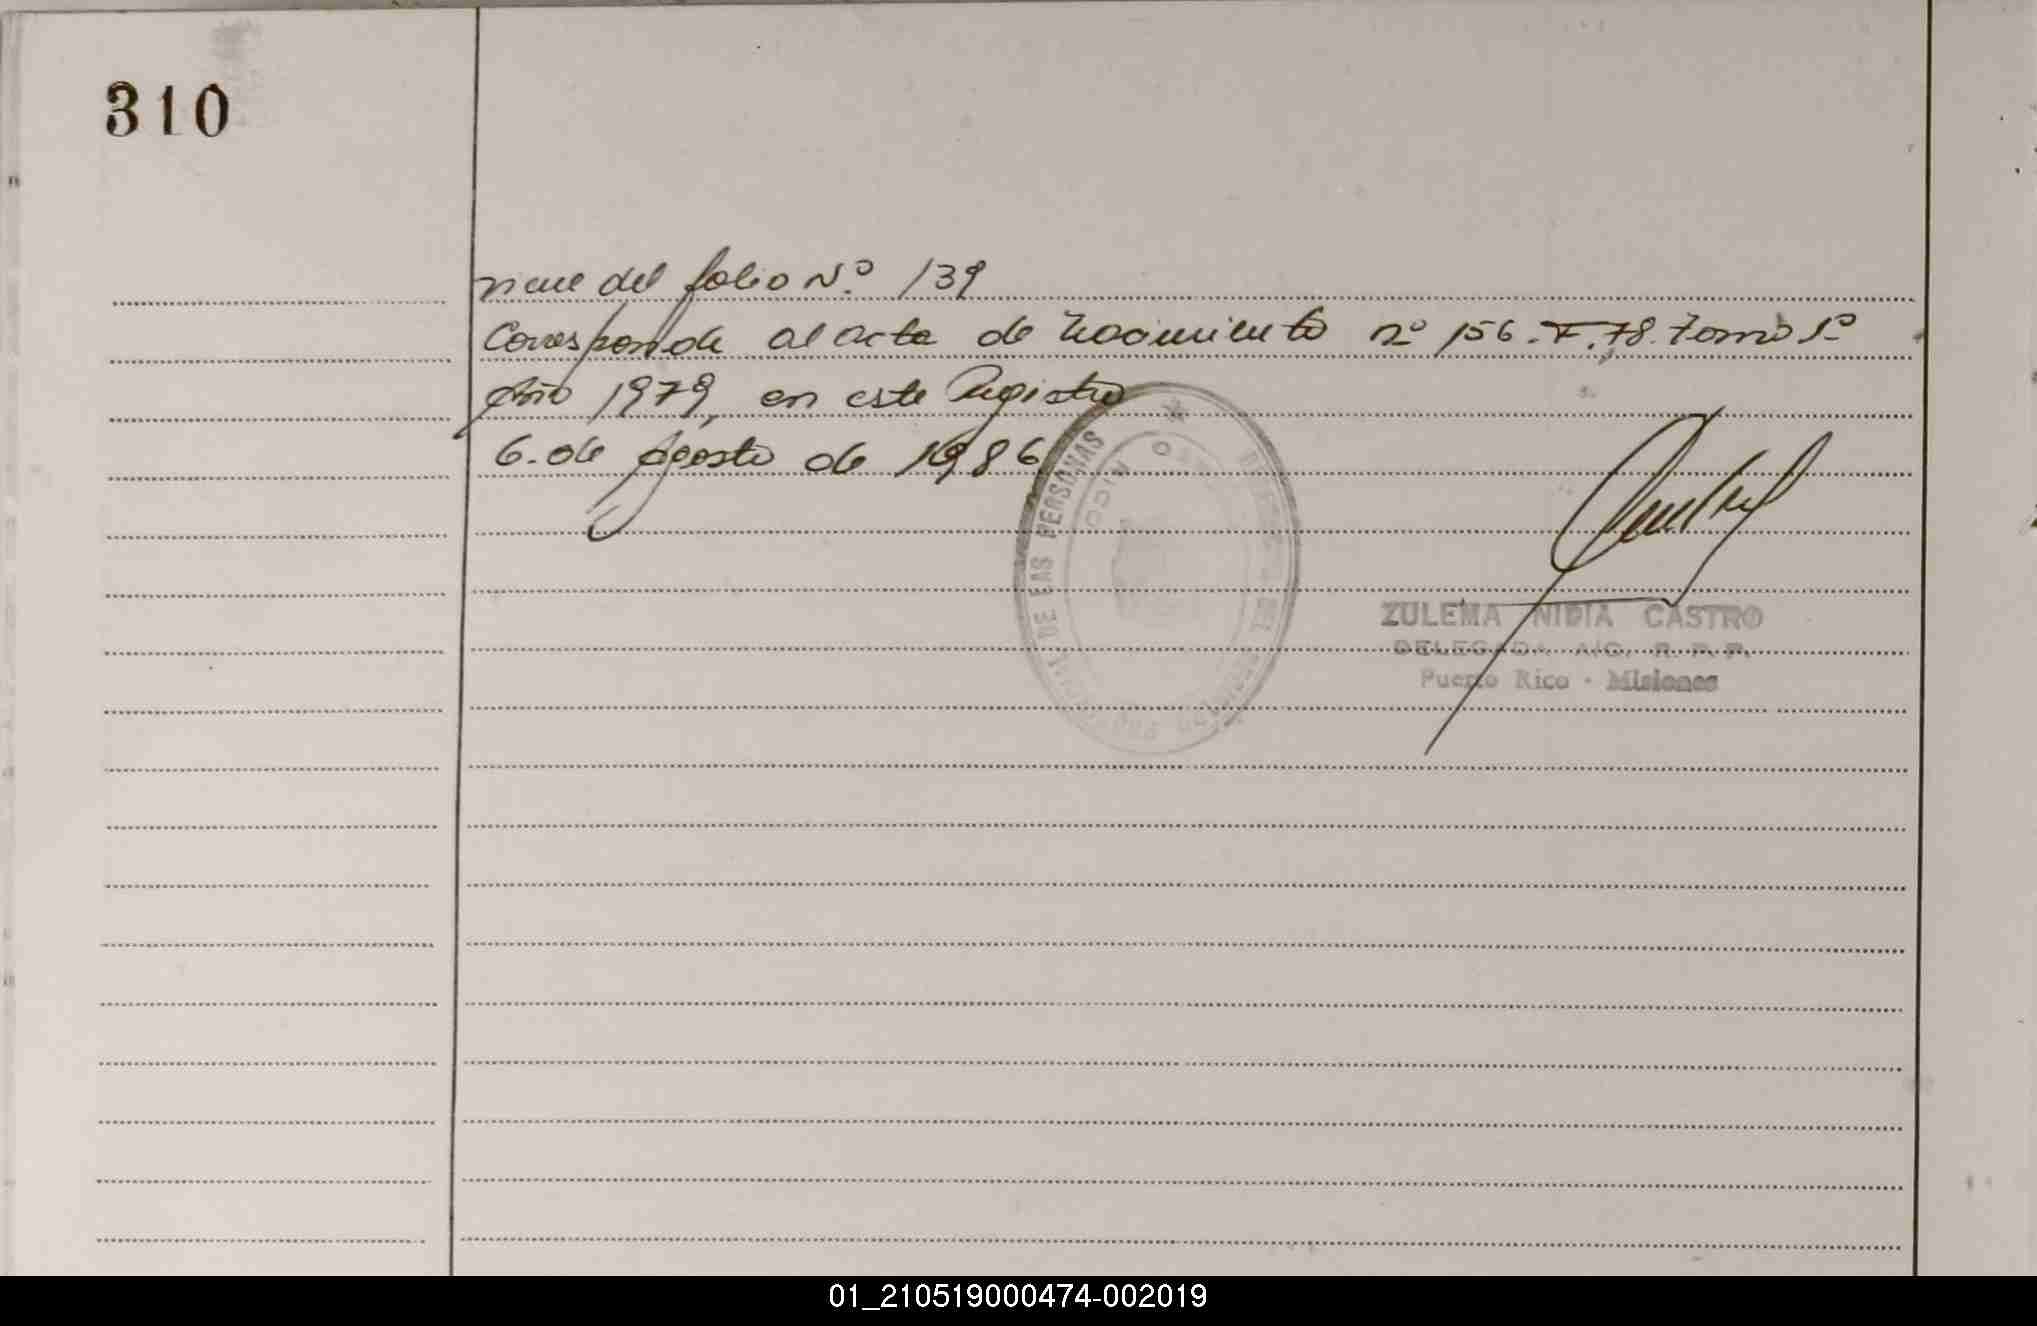 310
viene del folio Nº 139
Corresponde al acta de Nacimiento nº 156. F. 78. Tomo 1º
Año 1979, en este Registro
6. de Agosto de 1986
DE LAS PERSONAS
ZULEMA NIDIA CASTRO
DELEGADA A/C. R. P. P.
Puerto Rico - Misiones
01_210519000474-002019